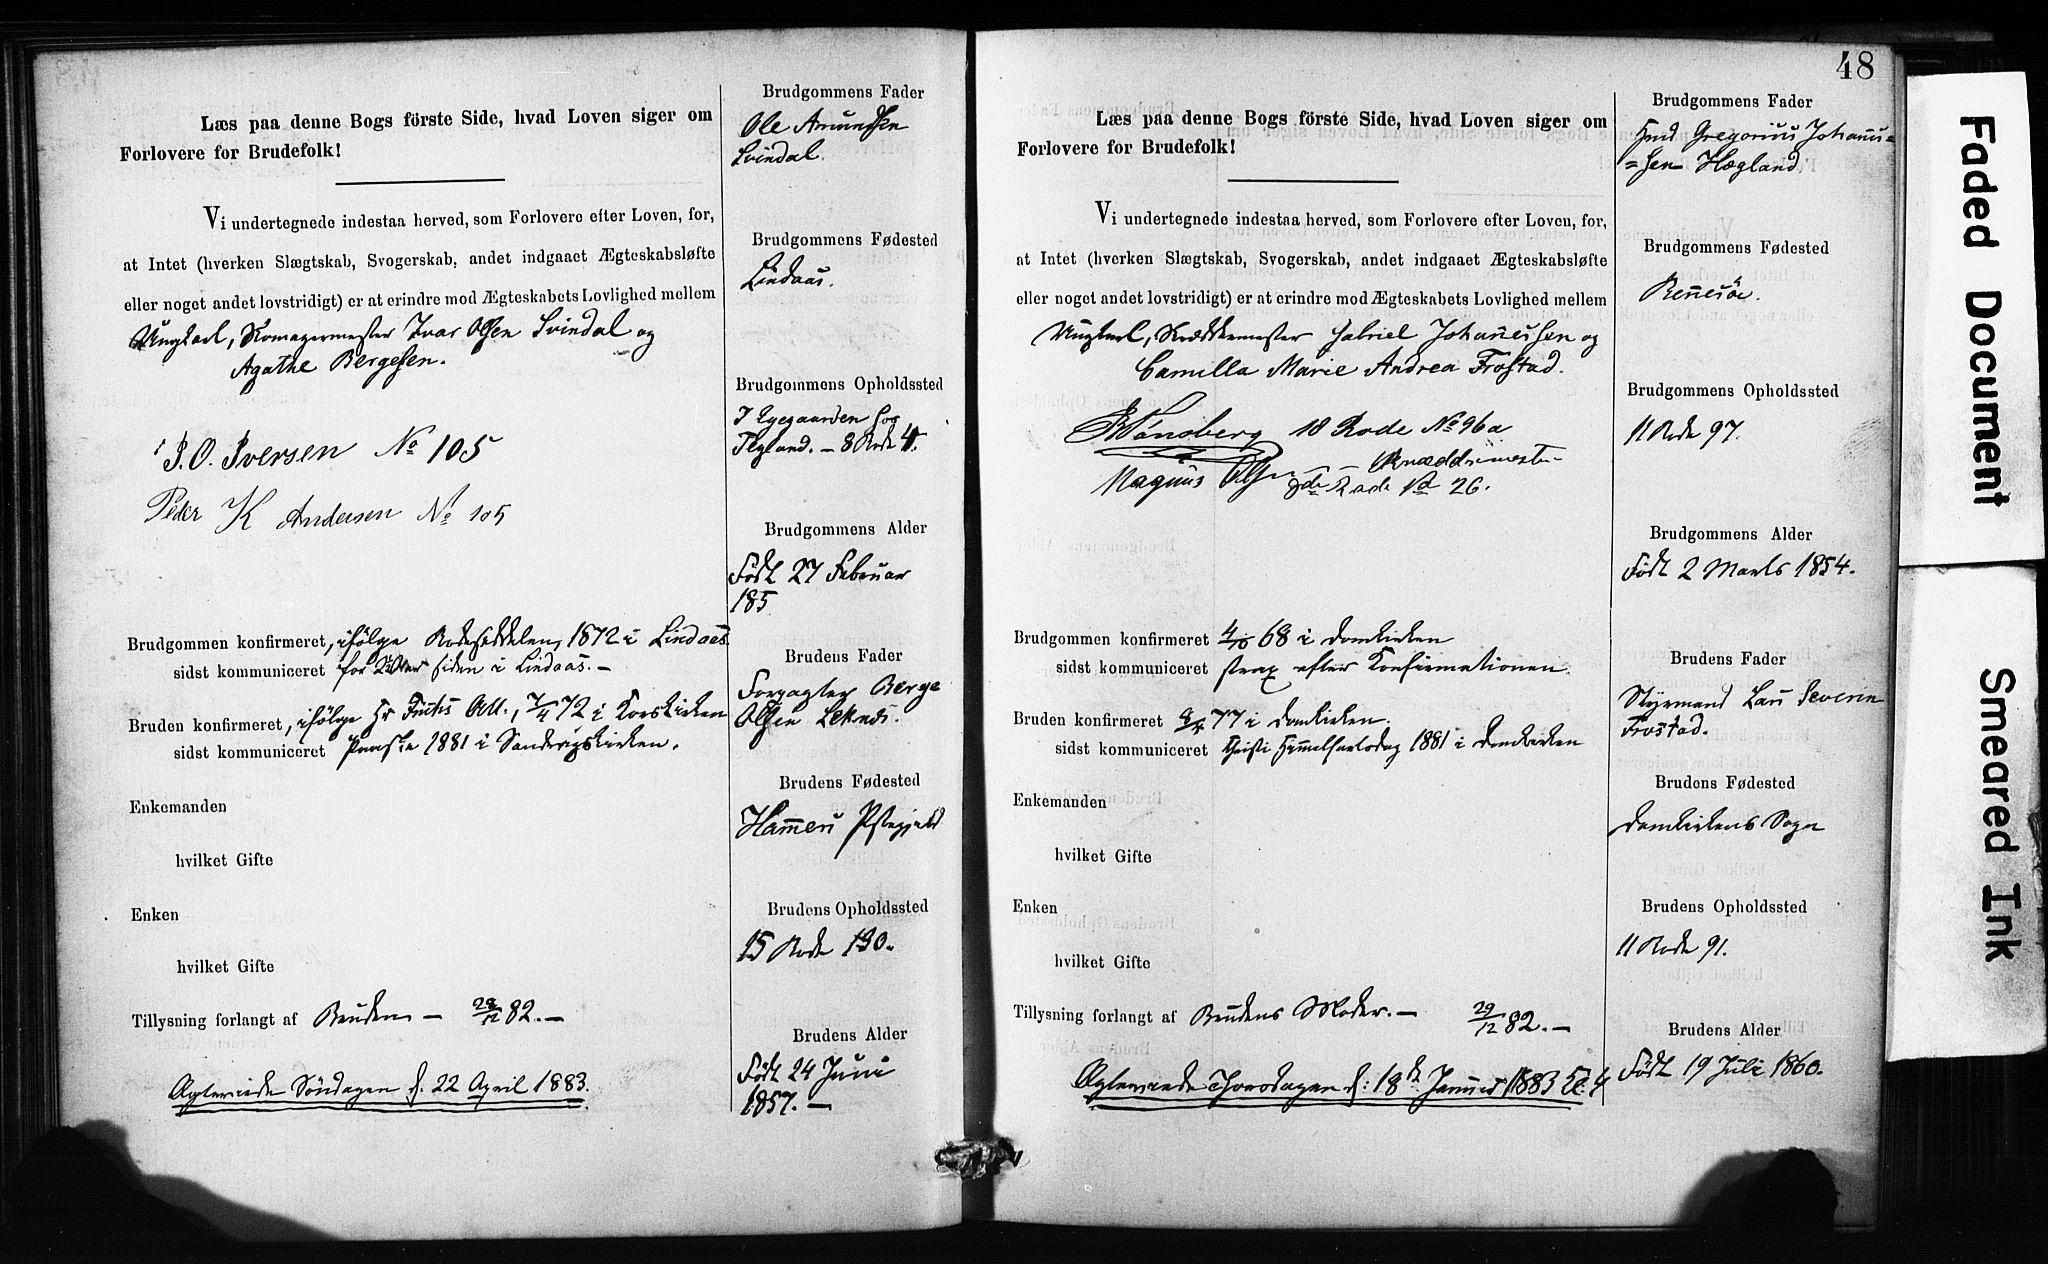 Læs paa denne Bogs förste Side, hvad Loven siger om
Forlovere for Brudefolk!
Vi undertegnede indestaa herved, som Forlovere efter Loven, for,
at Intet (hverken Slægtskab, Svogerskab, andet indgaaet Ægteskabsløfte
eller noget andet lovstridigt) er at erindre mod Ægteskabets Lovlighed mellem
Ungkarl, Skomagermester Ivar Olsen Svindal og
Agathe Bergesen.
P. O. Iversen No 105
Peder K Andersen No 105
Brudgommen konfirmeret, ifölge Rodeseddelen, 1872 i Lindaas
sidst kommuniceret for siden i Lindaas. —
Bruden konfirmeret, ifölge Hr Fuchs Att., 7/4 72 i Korskirken
sidst kommuniceret Paaske 1881 i Sandvigskirken.
Enkemanden
hvilket Gifte
Enken
hvilket Gifte
Tillysning forlangt af Bruden — 28/12 82. —
Agteviede Söndagen d. 22 April 1883.
Brudgommens Fader
Ole Amundsen
Svindal.
Brudgommens Fødested
Lindaas.
Brudgommens Opholdssted
I Eyegaarden hos
Tegland. — 8 Rode 4.
Brudgommens Alder
Födt 27 Februar
185
Brudens Fader
Forpagter Berge
Olsen Leknes.
Brudens Fødested
Hammers Pstegjeld
Brudens Opholdssted
15 Rode 130.
Brudens Alder
Födt 24 Juni
1857. —
48
Læs paa denne Bogs förste Side, hvad Loven siger om
Forlovere for Brudefolk!
Vi undertegnede indestaa herved, som Forlovere efter Loven, for,
at Intet (hverken Slægtskab, Svogerskab, andet indgaaet Ægteskabsløfte
eller noget andet lovstridigt) er at erindre mod Ægteskabets Lovlighed mellem
Ungkarl, Skræddermester Gabriel Johannessen og
Camilla Marie Andrea Frostad.
Tönsberg 18 Rode No 96a
Magnus Olsen Skræddermester
Rode No 26.
Brudgommen konfirmeret 4/10 68 i Domkirken
sidst kommuniceret strax efter Konfirmationen.
Bruden konfirmeret 77 i Domkirken.
sidst kommuniceret Christi Himmelfartsdag 1881 i Domkirken
Enkemanden
hvilket Gifte
Enken
hvilket Gifte
Tillysning forlangt af Brudens Moder. — 29/12 82. —
Agteviede Thorsdagen d: 18de Januar 1883 Kl. 4
Brudgommens Fader
Gregorius Johannes=
=sen Hægland
Brudgommens Fødested
Rennesöe.
Brudgommens Opholdssted
11 Rode 97.
Brudgommens Alder
Födt 2 Marts 1854.
Brudens Fader
Styrmand Lars Severin
Frostad.
Brudens Fødested
Domkirkens Sogn
Brudens Opholdssted
11 Rode 91.
Brudens Alder
Födt 19 Juli 1860.
Faded Document
Smeared Ink